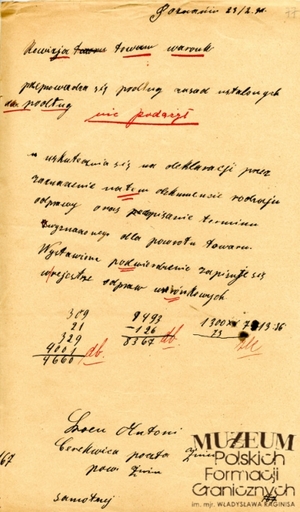 Poznań 23/2. 31.
77
Rewizja towaru warunk
przeprowadza się podług zasad ustalonych
dla podług nie podarzł
uskutecznia się na deklaracji przez
zaznaczenie na tem dokumencie rodzaju
odprawy oraz wypisanie terminu
wyznaczonego dla powrotu towaru.
Wystawione podwierdzenie zapisuje się
w rejestrze odpraw warunkowych
309
21
329
4001
4660 db.
8493
-126
8367 db.
73
Antoni
Cerekwica poczta Żnin
pow. Żnin
167
samotny
MUZEUM
Polskich
Formacji
Granicznych
im. mjr. WŁADYSŁAWA RAGINISA